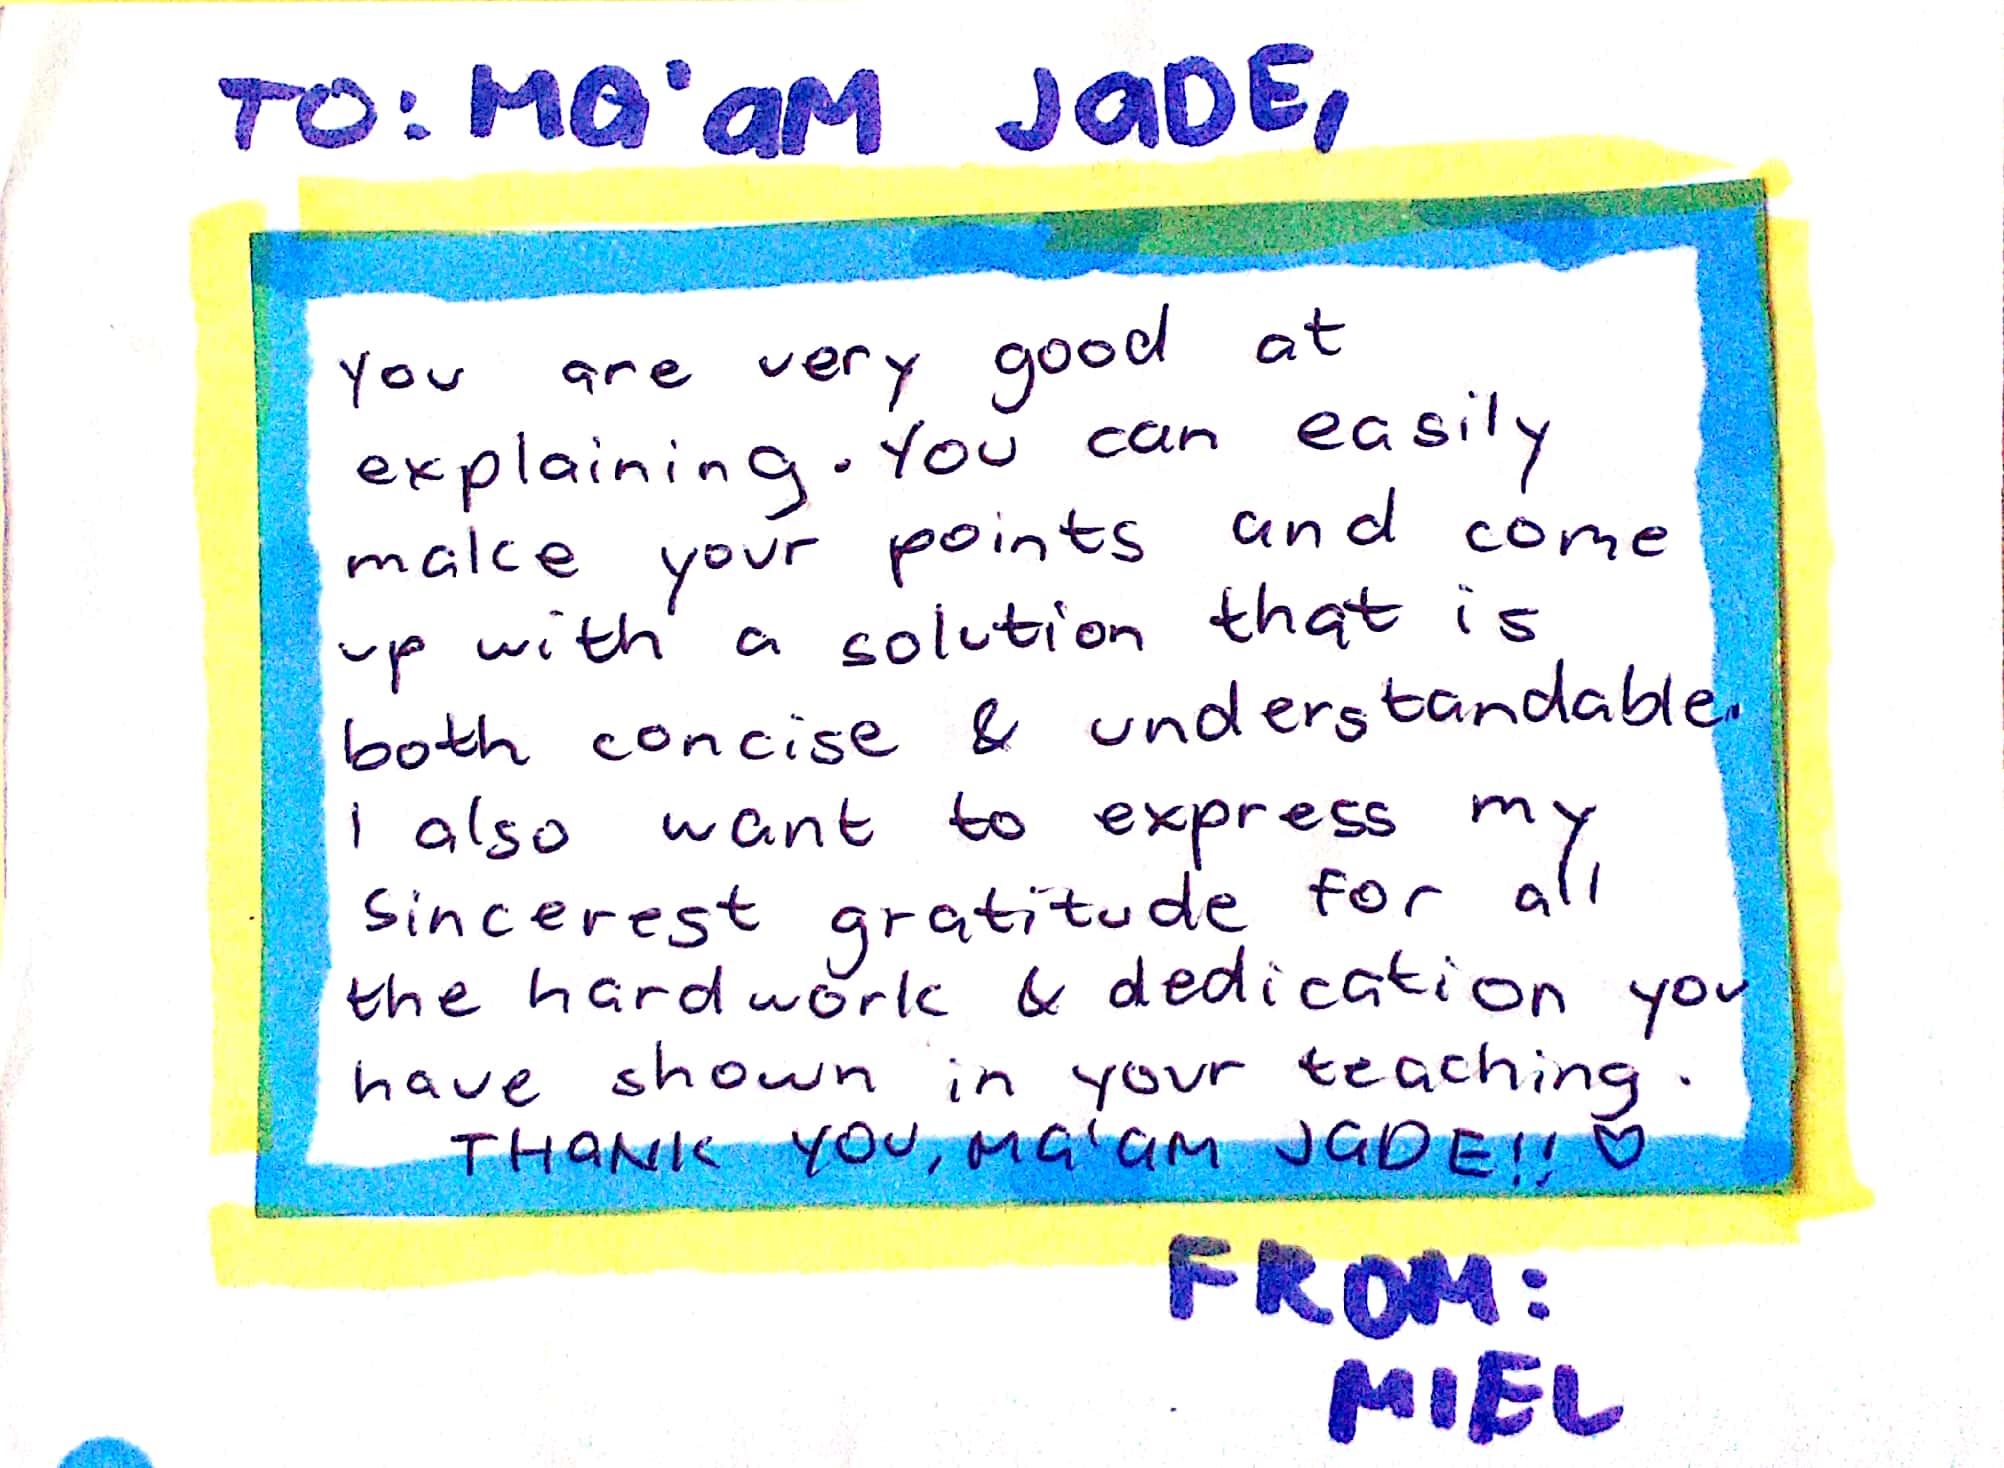 TO: MA'aM JaDE,
You are very good at
explaining. You can easily
make your points and come
up with a solution that is
both concise & understandable.
I also want to express my
sincerest gratitude for all
the hardwork & dedication you
have shown in your teaching.
THaNK YOU, Ma'aM JaDE!! ♡
FROM:
MIEL